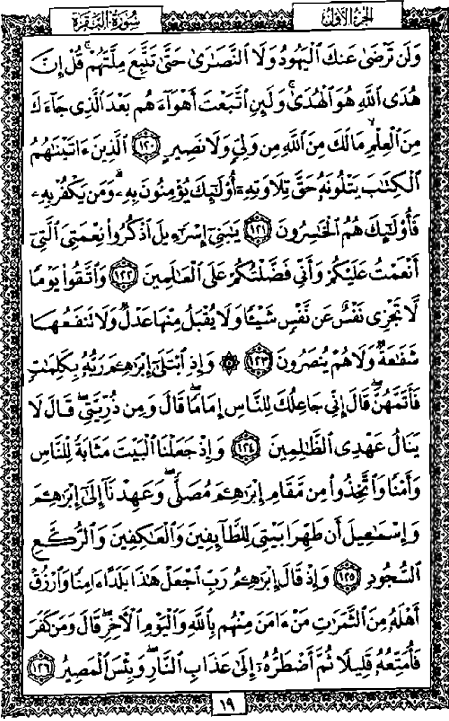 الجزء الأول
سورة البقرة
وَلَن تَرْضَىٰ عَنكَ ٱلْيَهُودُ وَلَا ٱلنَّصَٰرَىٰ حَتَّىٰ تَتَّبِعَ مِلَّتَهُمْ ۗ قُلْ إِنَّ
هُدَى ٱللَّهِ هُوَ ٱلْهُدَىٰ ۗ وَلَئِنِ ٱتَّبَعْتَ أَهْوَآءَهُم بَعْدَ ٱلَّذِى جَآءَكَ
مِنَ ٱلْعِلْمِ ۙ مَا لَكَ مِنَ ٱللَّهِ مِن وَلِىٍّ وَلَا نَصِيرٍ ١٢٠ ٱلَّذِينَ ءَاتَيْنَٰهُمُ
ٱلْكِتَٰبَ يَتْلُونَهُۥ حَقَّ تِلَاوَتِهِۦٓ أُو۟لَٰٓئِكَ يُؤْمِنُونَ بِهِۦ ۗ وَمَن يَكْفُرْ بِهِۦ
فَأُو۟لَٰٓئِكَ هُمُ ٱلْخَٰسِرُونَ ١٢١ يَٰبَنِىٓ إِسْرَٰٓءِيلَ ٱذْكُرُوا۟ نِعْمَتِىَ ٱلَّتِىٓ
أَنْعَمْتُ عَلَيْكُمْ وَأَنِّى فَضَّلْتُكُمْ عَلَى ٱلْعَٰلَمِينَ ١٢٢ وَٱتَّقُوا۟ يَوْمًا
لَّا تَجْزِى نَفْسٌ عَن نَّفْسٍ شَيْـًٔا وَلَا يُقْبَلُ مِنْهَا عَدْلٌ وَلَا تَنفَعُهَا
شَفَٰعَةٌ وَلَا هُمْ يُنصَرُونَ ١٢٣ ۞ وَإِذِ ٱبْتَلَىٰٓ إِبْرَٰهِۦمَ رَبُّهُۥ بِكَلِمَٰتٍ
فَأَتَمَّهُنَّ ۖ قَالَ إِنِّى جَاعِلُكَ لِلنَّاسِ إِمَامًا ۖ قَالَ وَمِن ذُرِّيَّتِى ۖ قَالَ لَا
يَنَالُ عَهْدِى ٱلظَّٰلِمِينَ ١٢٤ وَإِذْ جَعَلْنَا ٱلْبَيْتَ مَثَابَةً لِّلنَّاسِ
وَأَمْنًا وَٱتَّخِذُوا۟ مِن مَّقَامِ إِبْرَٰهِۦمَ مُصَلًّى ۖ وَعَهِدْنَآ إِلَىٰٓ إِبْرَٰهِۦمَ
وَإِسْمَٰعِيلَ أَن طَهِّرَا بَيْتِىَ لِلطَّآئِفِينَ وَٱلْعَٰكِفِينَ وَٱلرُّكَّعِ
ٱلسُّجُودِ ١٢٥ وَإِذْ قَالَ إِبْرَٰهِۦمُ رَبِّ ٱجْعَلْ هَٰذَا بَلَدًا ءَامِنًا وَٱرْزُقْ
أَهْلَهُۥ مِنَ ٱلثَّمَرَٰتِ مَنْ ءَامَنَ مِنْهُم بِٱللَّهِ وَٱلْيَوْمِ ٱلْءَاخِرِ ۖ قَالَ وَمَن كَفَرَ
فَأُمَتِّعُهُۥ قَلِيلًا ثُمَّ أَضْطَرُّهُۥٓ إِلَىٰ عَذَابِ ٱلنَّارِ ۖ وَبِئْسَ ٱلْمَصِيرُ ١٢٦
١٩